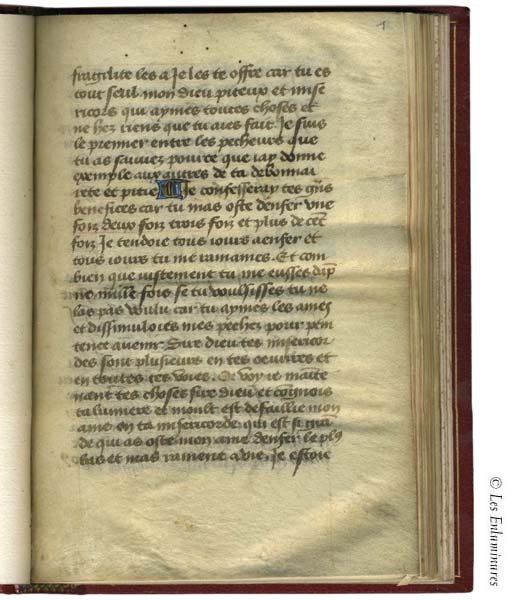 1
fragilite les a Je les te offre car tu es
tout seul mon dieu piteux et mise
ricors qui aymes toutes choses et
ne hez riens que tu aies fait. Je suis
le premier entre les pecheurs que
tu as sauvez pource que iay donne
exemple aux autres de ta debonnai
rete et pitie Je confesseray tes gñs
benefices car tu mas oste denfer vne
foiz deux foiz trois foiz et plus de cet̃
foiz Je tendoie tous iours a enfer et
tous iours tu me ramaines. Et com
bien que iustement tu me eusses dãp
ne mille fois se tu voulsisses tu ne
las pas voulu car tu aymes les ames
et dissimuloies mes pechez pour peni
tence auenir Sire dieu tes misericor
des sont plusieurs en tes oeuures et
en toutes tes voies. Or voy ie mainte
nant tes choses sire dieu et cõgnois
ta lumiere et moult est defaillie mon
ame en ta misericorde qui est si grã
de qui as oste mon ame denfer le plꝰ
bas et mas ramene a vie. Je estoie
© Les Enluminures